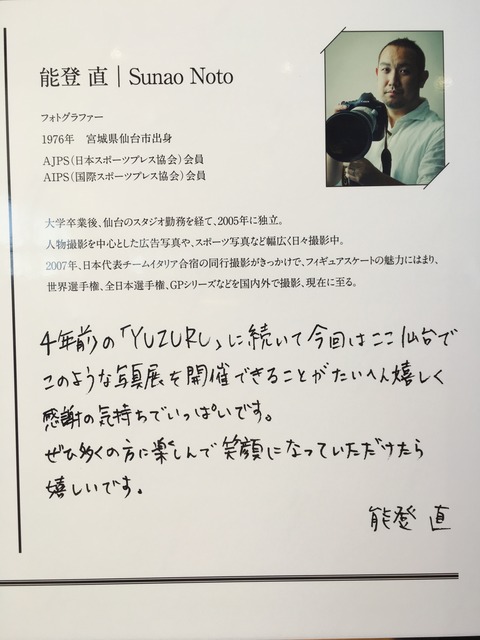 能登 直 | Sunao Noto
フォトグラファー
1976年　宮城県仙台市出身
AJPS（日本スポーツプレス協会）会員
AIPS（国際スポーツプレス協会）会員
大学卒業後、仙台のスタジオ勤務を経て、2005年に独立。
人物撮影を中心とした広告写真や、スポーツ写真など幅広く日々撮影中。
2007年、日本代表チームイタリア合宿の同行撮影がきっかけで、フィギュアスケートの魅力にはまり、
世界選手権、全日本選手権、GPシリーズなどを国内外で撮影、現在に至る。
4年前の「YUZURU」に続いて今回はここ仙台で
このような写真展を開催できることがたいへん嬉しく
感謝の気持ちでいっぱいです。
ぜひ多くの方に楽しんで笑顔になっていただけたら
嬉しいです。
能登 直